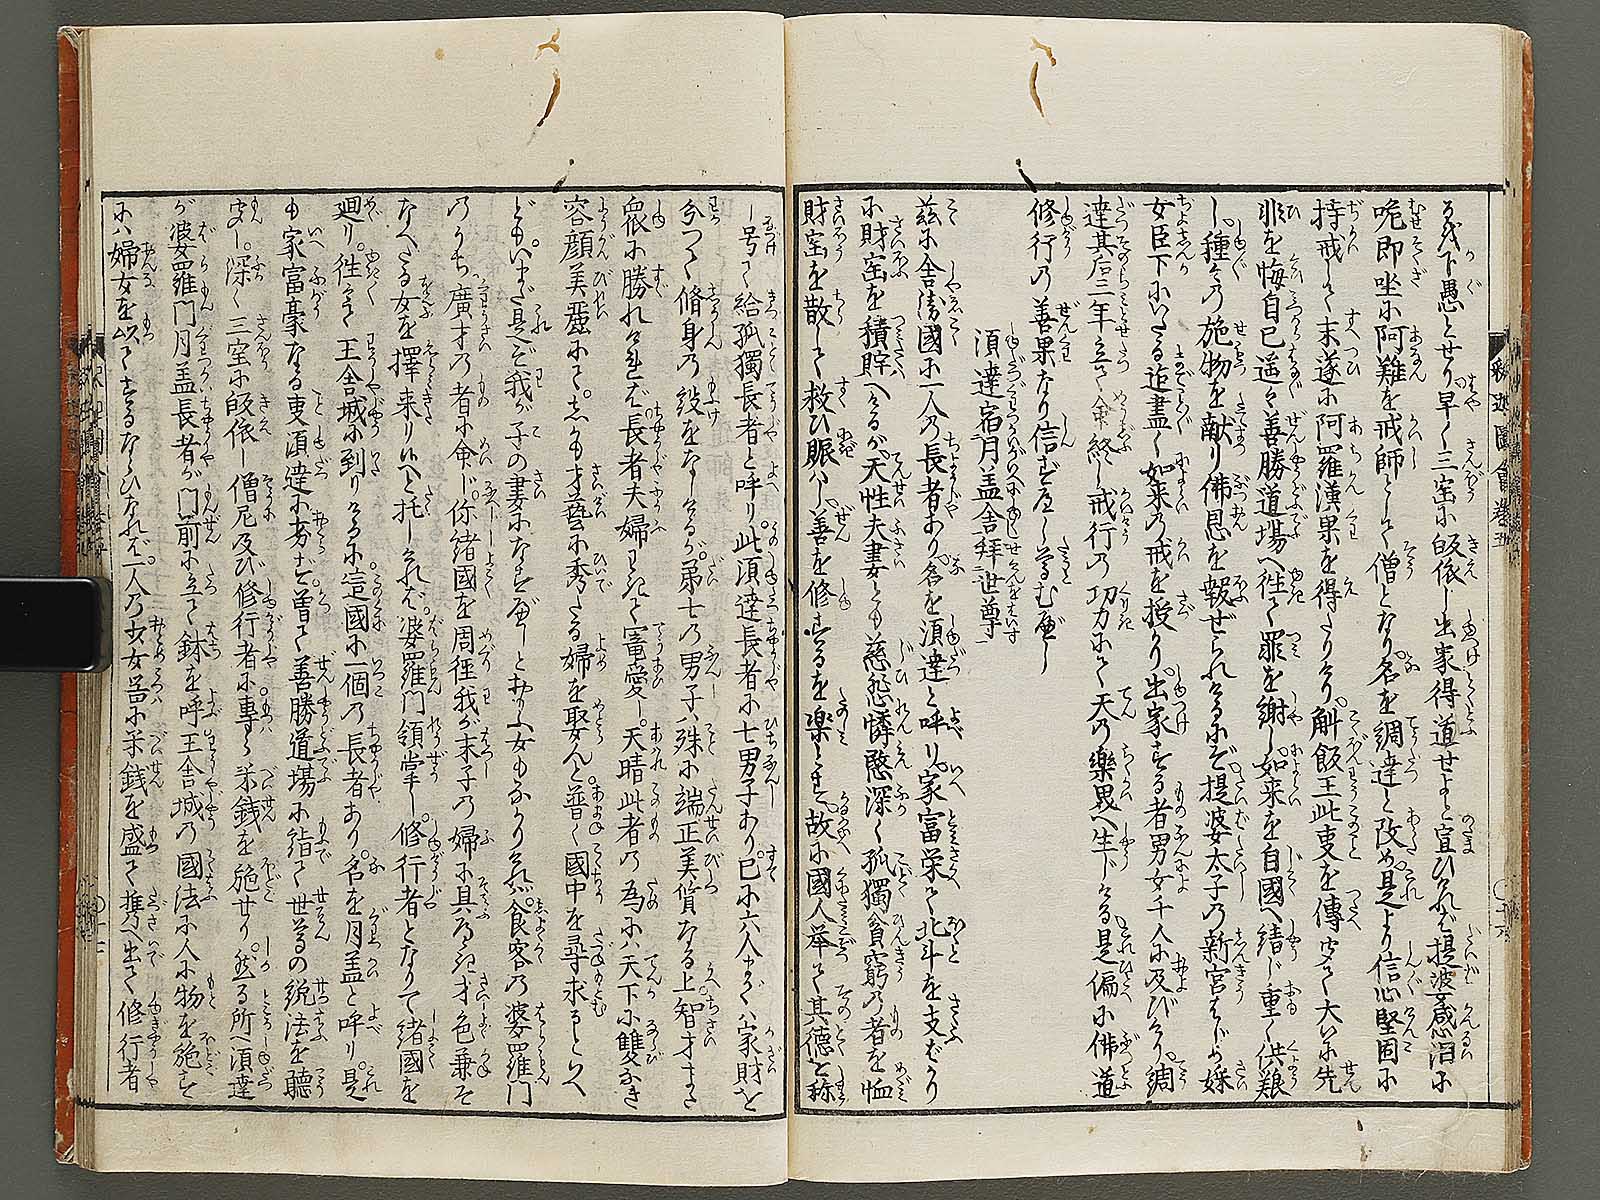 釈迦圖會巻五
る我下愚とせり早く三宝に皈依し出家得道せよと宣ひけれバ提婆感泪に
咽即坐に阿難を戒師として僧となり名を綢達と改め是より信心堅固に
持戒して末遂に阿羅漢果を得たりけり斛飯王此事を傳聞て大いに先
非を悔自已遥々善勝道場へ徃て罪を謝し如来を自國へ結じ重く供養
し種々の施物を献り佛恩を報ぜられけるにぞ提婆太子乃新宮をはじめ婇
女臣下にいたる迄盡く如来乃戒を授り出家する者男女千人に及びけり綢
達其后三年立て命終し戒行乃功力にて天の樂界へ生じける是偏に佛道
修行乃善果なり信ずべし尊むべし
須達宿月盖舎拜世尊
茲に舎衛國に一人乃長者あり名を須達と呼り家富栄て北斗を支ばかり
に財宝を積貯へけるが天性夫妻とも慈悲憐愍深く孤獨貧窮乃者を恤
財宝を散して救ひ賑ハし善を修するを楽とす故に國人挙て其德を称
し号て給孤獨長者と呼り此須達長者に七男子あり已に六人までハ家財を
分つて脩身乃設をなしけるが第七乃男子ハ殊に端正美質なる上智才まさ
衆に勝れけれバ長者夫婦わきて寵愛し天晴此者乃為にハ天下に雙なき
容顔美麗にてしかも才藝に秀たる婦を娶んと普く國中を尋求るといへ
どもいまだ是ぞ我が子の妻になすべしとおもふ女もなかりけれバ食客の婆羅門
乃うち廣才乃者に命じ你緒國を周徑我が末子乃婦に具ふべき才色兼そ
なへたる女を擇来りいへと托しけれバ婆羅門領掌し修行者となりて緒國を
廻り徃々て王舎城に到りけるに這國に一個乃長者あり名を月盖と呼り是
も家富豪なる事須達に劣ず曽て善勝道場に詣て世尊の説法を聽
聞し深く三宝に皈依し僧尼及び修行者に專ら米錢を施せり然る所へ須達
が婆羅門月盖長者が门前に立て鉢を呼王舎城乃國法に人に物を施す
にハ婦女を以てするならひなれバ一人乃少女器に米錢を盛て携へ出て修行者